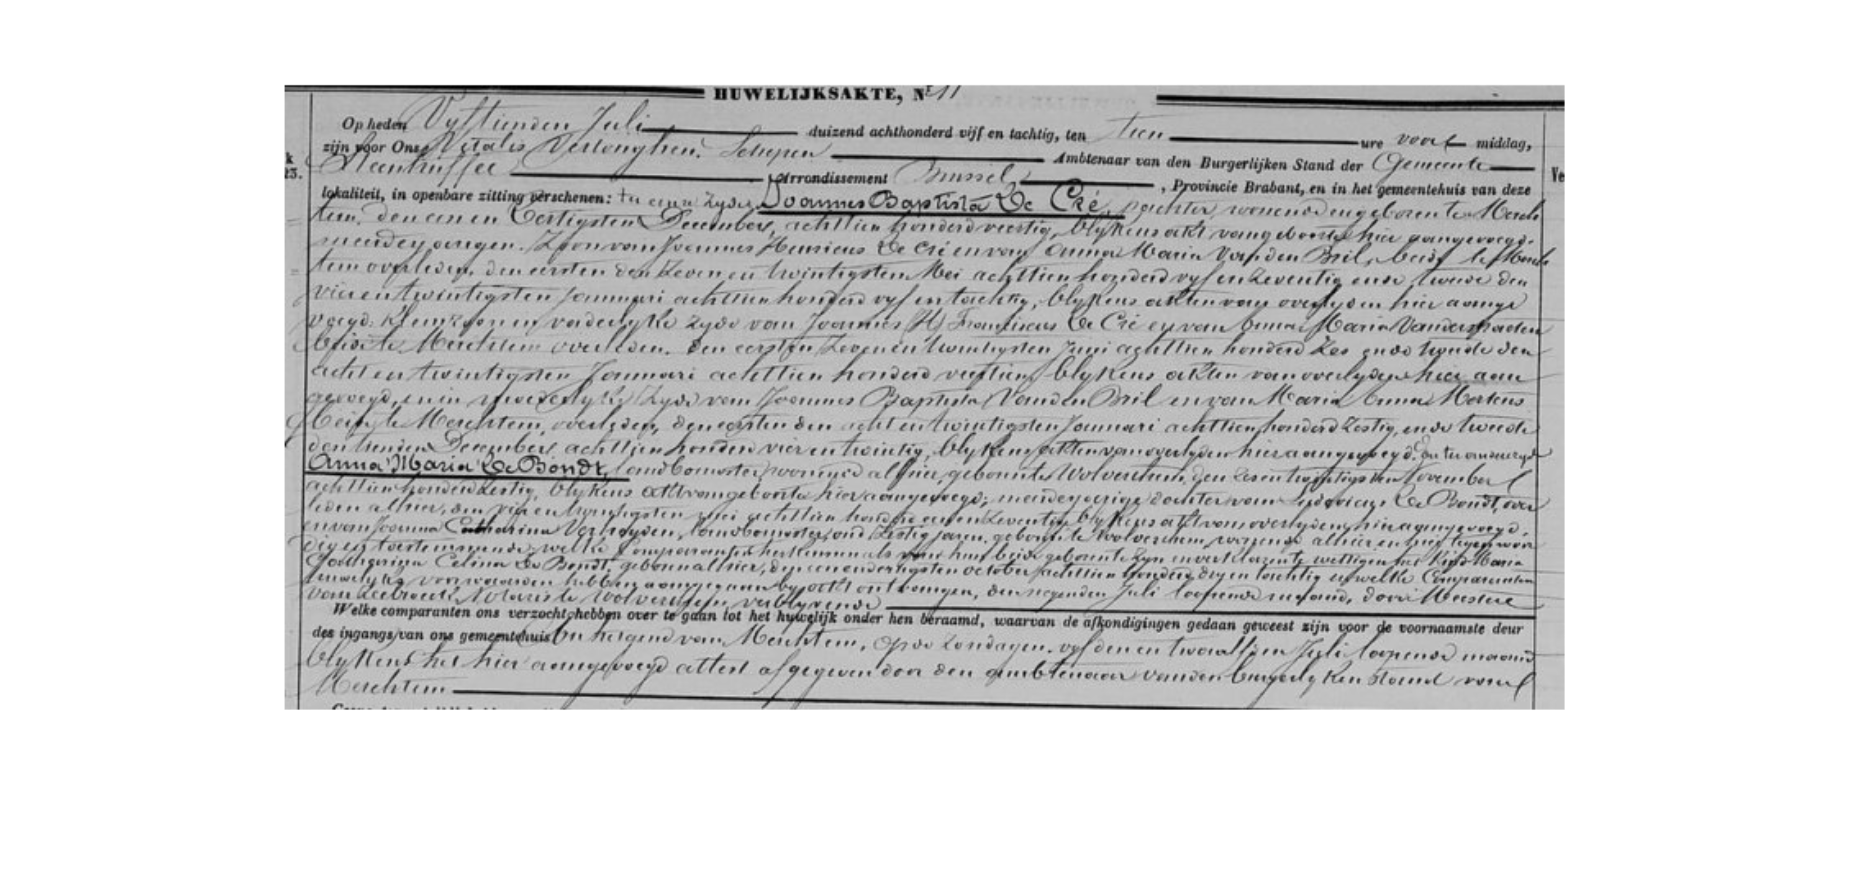 HUWELIJKSAKTE, Nr 11
Op heden Vyftienden Juli duizend achthonderd vijf en tachtig, ten tien ure voor middag,
zijn voor Ons, Vitalis Verlonghen, Schepen Ambtenaar van den Burgerlijken Stand der Gemeente
k Steenhuffel Arrondissement Brussel, Provincie Brabant, en in het gemeentehuis van deze Ve
lokaliteit, in openbare zitting verschenen: ten eene zyde, Joannes Baptista De Cré, pachter, wonende en geboren te Merch
tem, den een en December, achttien honderd veertig, blykens akt van geboorte hier aangevoegd,
meerderjarigen Zoon van Joannes Henricus De Cré en van Anna Maria Van den Bril, beide te Merch
tem overleden, den eersten den zeven en twintigsten Mei achttien honderd vyf en zeventig ende tweede den
vier en twintigsten Januari achttien honderd vyf en tachtig, blykens akten van overlyden hier aange
voegd; kleinzoon in vaderlyke zyde van Joannes Franciscus De Cré en van Anna Maria Vanderstraeten
beide te Merchtem overleden, den eersten zeven en twintigsten Juni achttien honderd zes ende tweede den
acht en twintigsten Januari achttien honderd veertien, blykens akten van overlyden hier aan
gevoegd, en in moederlyke zyde van Joannes Baptista Van den Bril en van Maria Anna Mertens
beide te Merchtem, overleden, den eersten den acht en twintigsten Januari achttien honderd zestig, ende tweede
den tienden December achttien honderd vier en twintig, blykens akten van overlyden hier aangevoegd. En ten anderzyde
Anna Maria De Bondt, landbouwster, wonende alhier, geboren te Wolverthem, den zes en twintigsten November
achttien honderd zestig, blykens akt van geboorte hier aangevoegd; meerderjarige dochter van Ludovicus De Bondt, over
leden alhier, den vier en twintigsten mei achttien honderd een en zeventig blykens akt van overlyden hier aangevoegd,
en van Joanna Catharina Verheyden, landbouwster, oud zestig jaren, geboren te Wolverthem, wonende alhier en hier tegenwoor
dig en toestemmende; welke Comparanten herkennen als van hun beide geboren te zyn en verklaren te wettigen het Kind Maria
Catharina Celina De Bondt, geboren alhier, den een en dertigsten october achttien honderd dry en tachtig en welke Comparanten
huwelyks voorwaarden hebben aangegaan by akt ontvangen, den negenden Juli loopende maand, door Meester
Notaris te Wolverthem verblyvende
Welke comparanten ons verzocht hebben over te gaan tot het huwelijk onder hen beraamd, waarvan de afkondigingen gedaan geweest zijn voor de voornaamste deur
des ingangs van ons gemeentehuis en dergene van Merchtem, op de zondagen, vyfden en twaalfden Juli loopende maand
blykens het hier aangevoegd attest afgegeven door den ambtenaar van den burgerlyken stand van
Merchtem